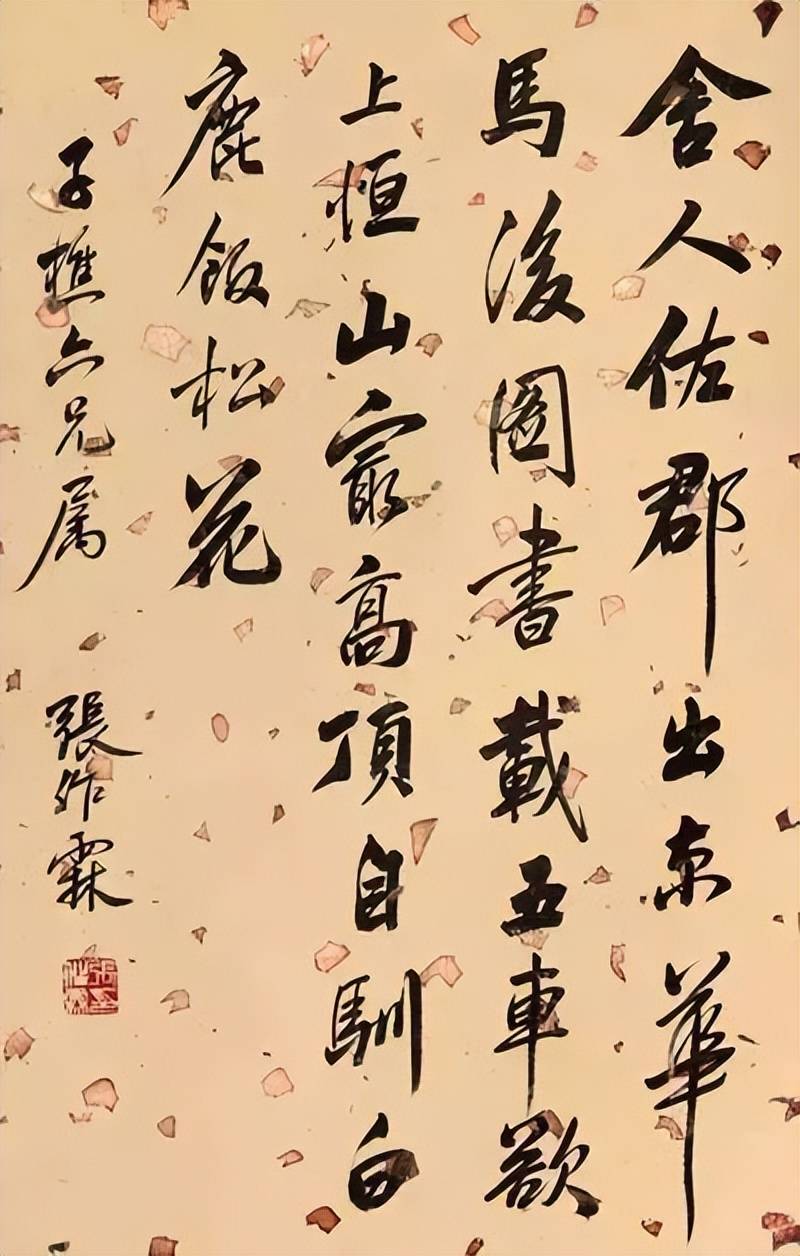 舍人佐郡出東華
馬後圖書載五車欲
上恒山最高頂自馴白
鹿飯松花
子樵六兄属 張作霖